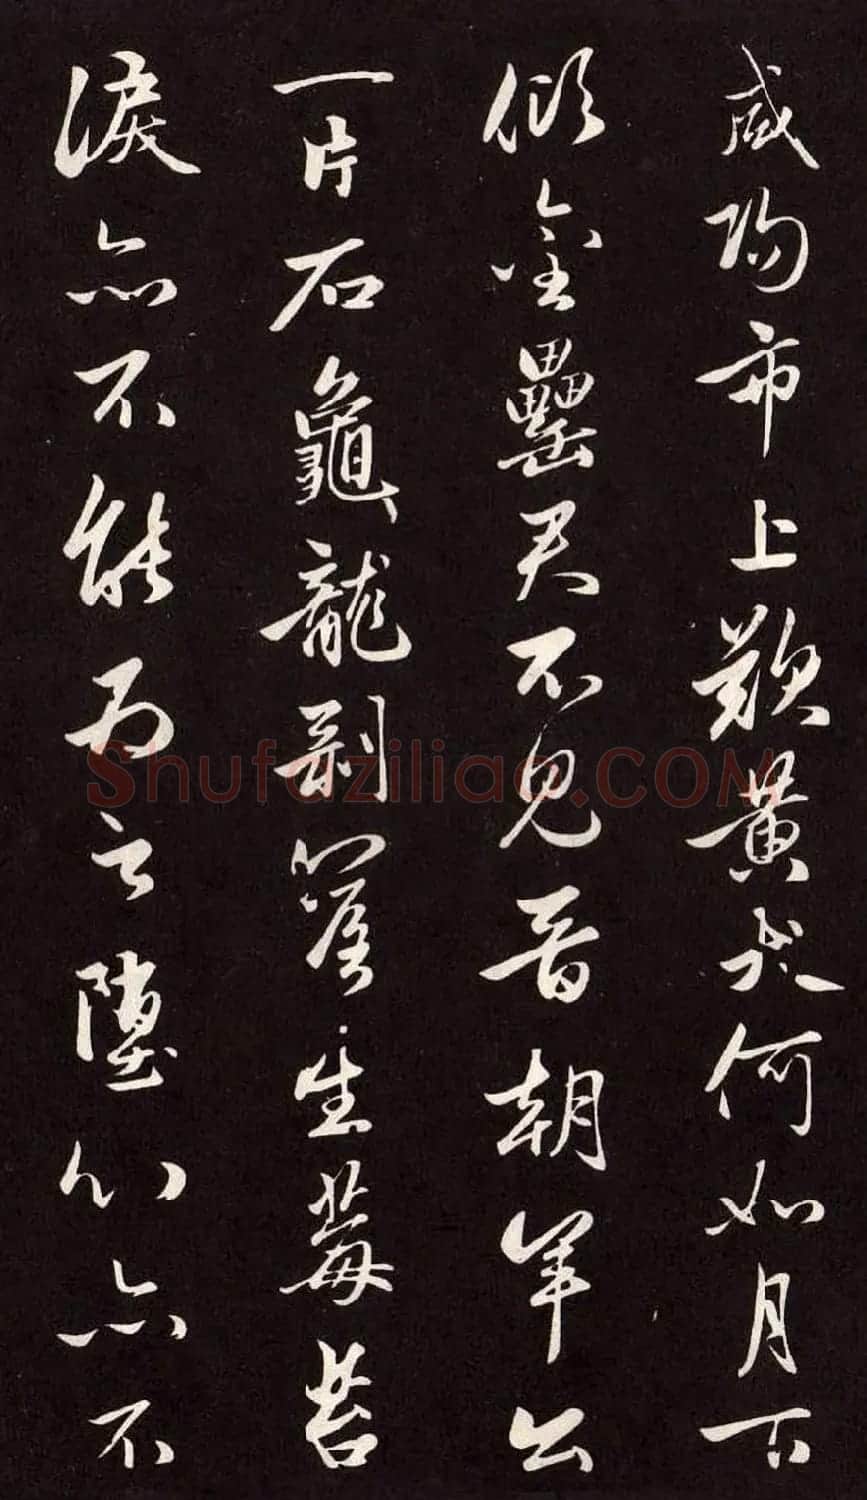 咸陽市上歎黃犬何如月下
傾金罍君不見晉朝羊公
一片石龜龍剝落生莓苔
淚亦不能為之墮心亦不
Shufaziliao.COM